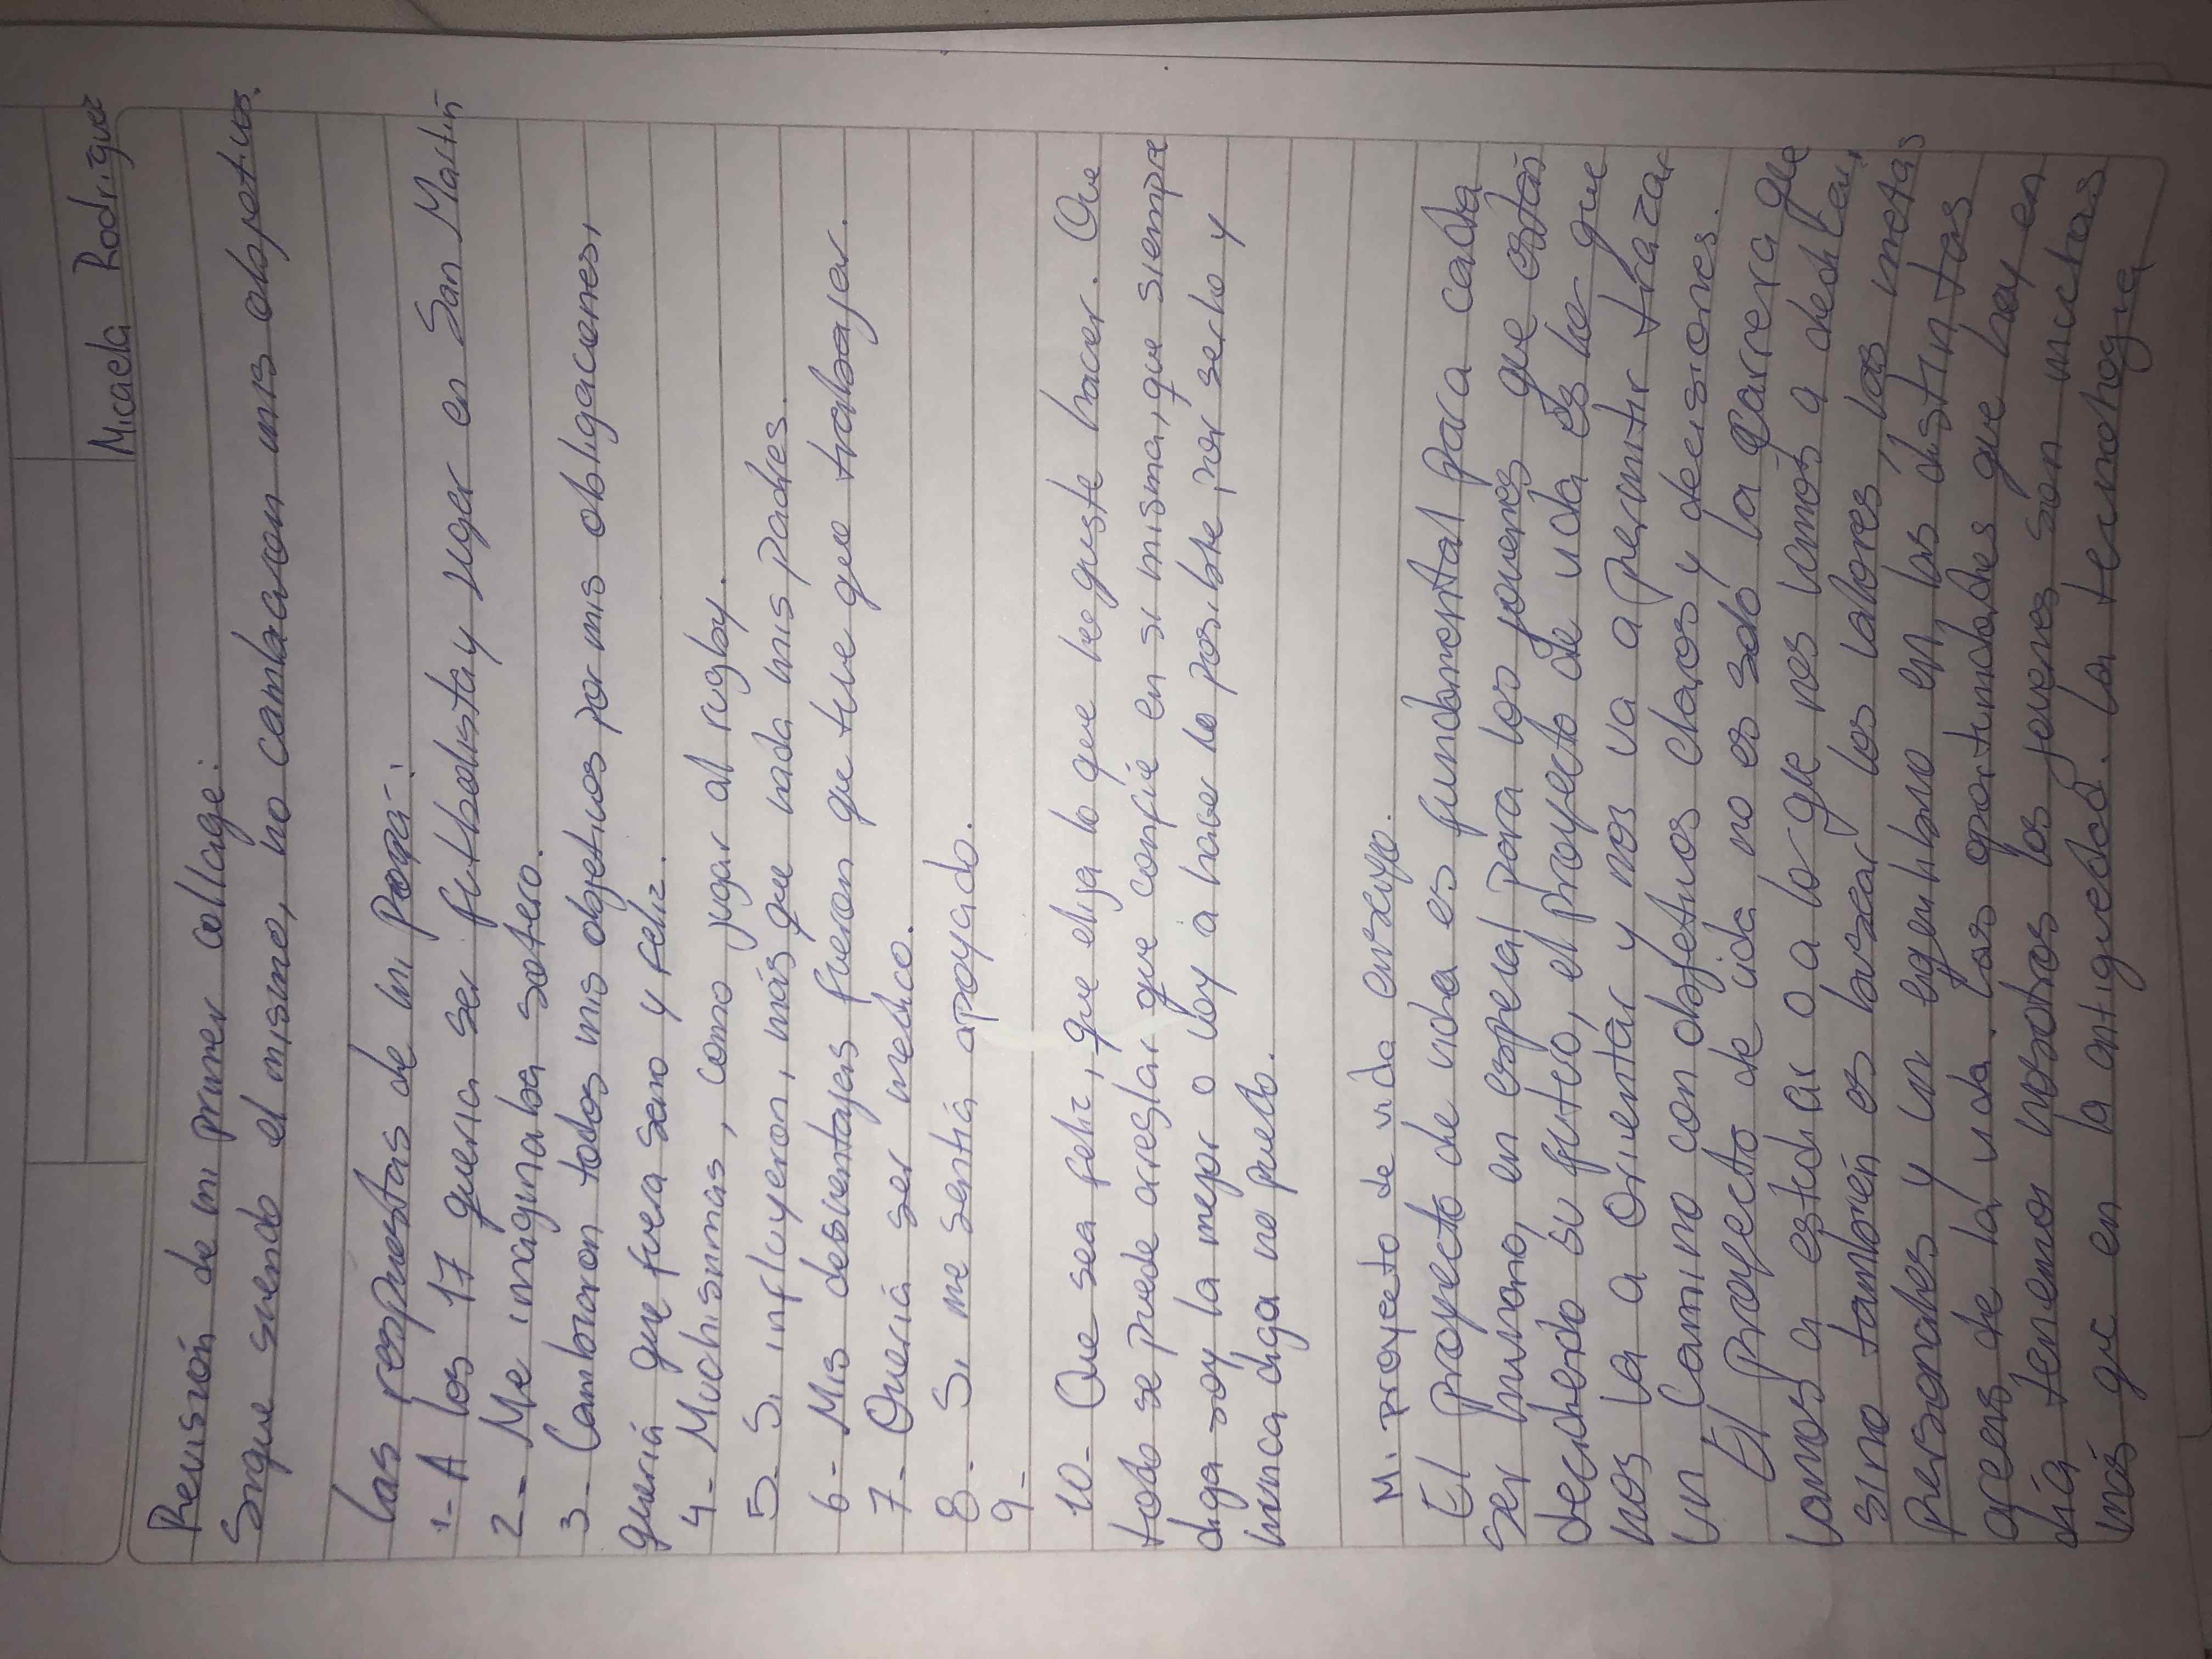 Micaela Rodriguez
Revisión de mi primer collage:
Sigue siendo el mismo, no cambiaron mis objetivos.
Las respuestas de mi Papá:
1- A los 17 queria ser futbolista y jugar en San Martín
2- Me imaginaba soltero.
3- Cambiaron todos mis objetivos por mis obligaciones,
quería que fuera sano y feliz.
4- Muchisimas, como jugar al rugby.
5- Si influyeron, más que nada mis padres.
6- Mis desventajas fueron que tuve que trabajar.
7- Quería ser medico.
8- Si me sentia apoyado.
9-
10- Que sea feliz, que elija lo que le guste hacer. Que
todo se puede arreglar que confie en si misma, que siempre
diga soy la mejor o voy a hacer lo posible por serlo y
nunca diga no puedo.
Mi proyecto de vida ensayo.
El proyecto de vida es fundamental para cada
ser humano, en especial para los jovenes que están
decidiendo su futuro, el proyecto de vida es lo que
nos va a orientar y nos va a permitir trazar
un camino con objetivos claros y decisiones.
El proyecto de vida no es solo la carrera que
vamos a estudiar o a lo que nos vamos a dedicar,
sino también es buscar los valores, las metas
personales y un equilibrio en las distintas
areas de la vida. Las oportunidades que hay en
día tenemos nosotros los jovenes son muchas
más que en la antiguedad. La tecnología